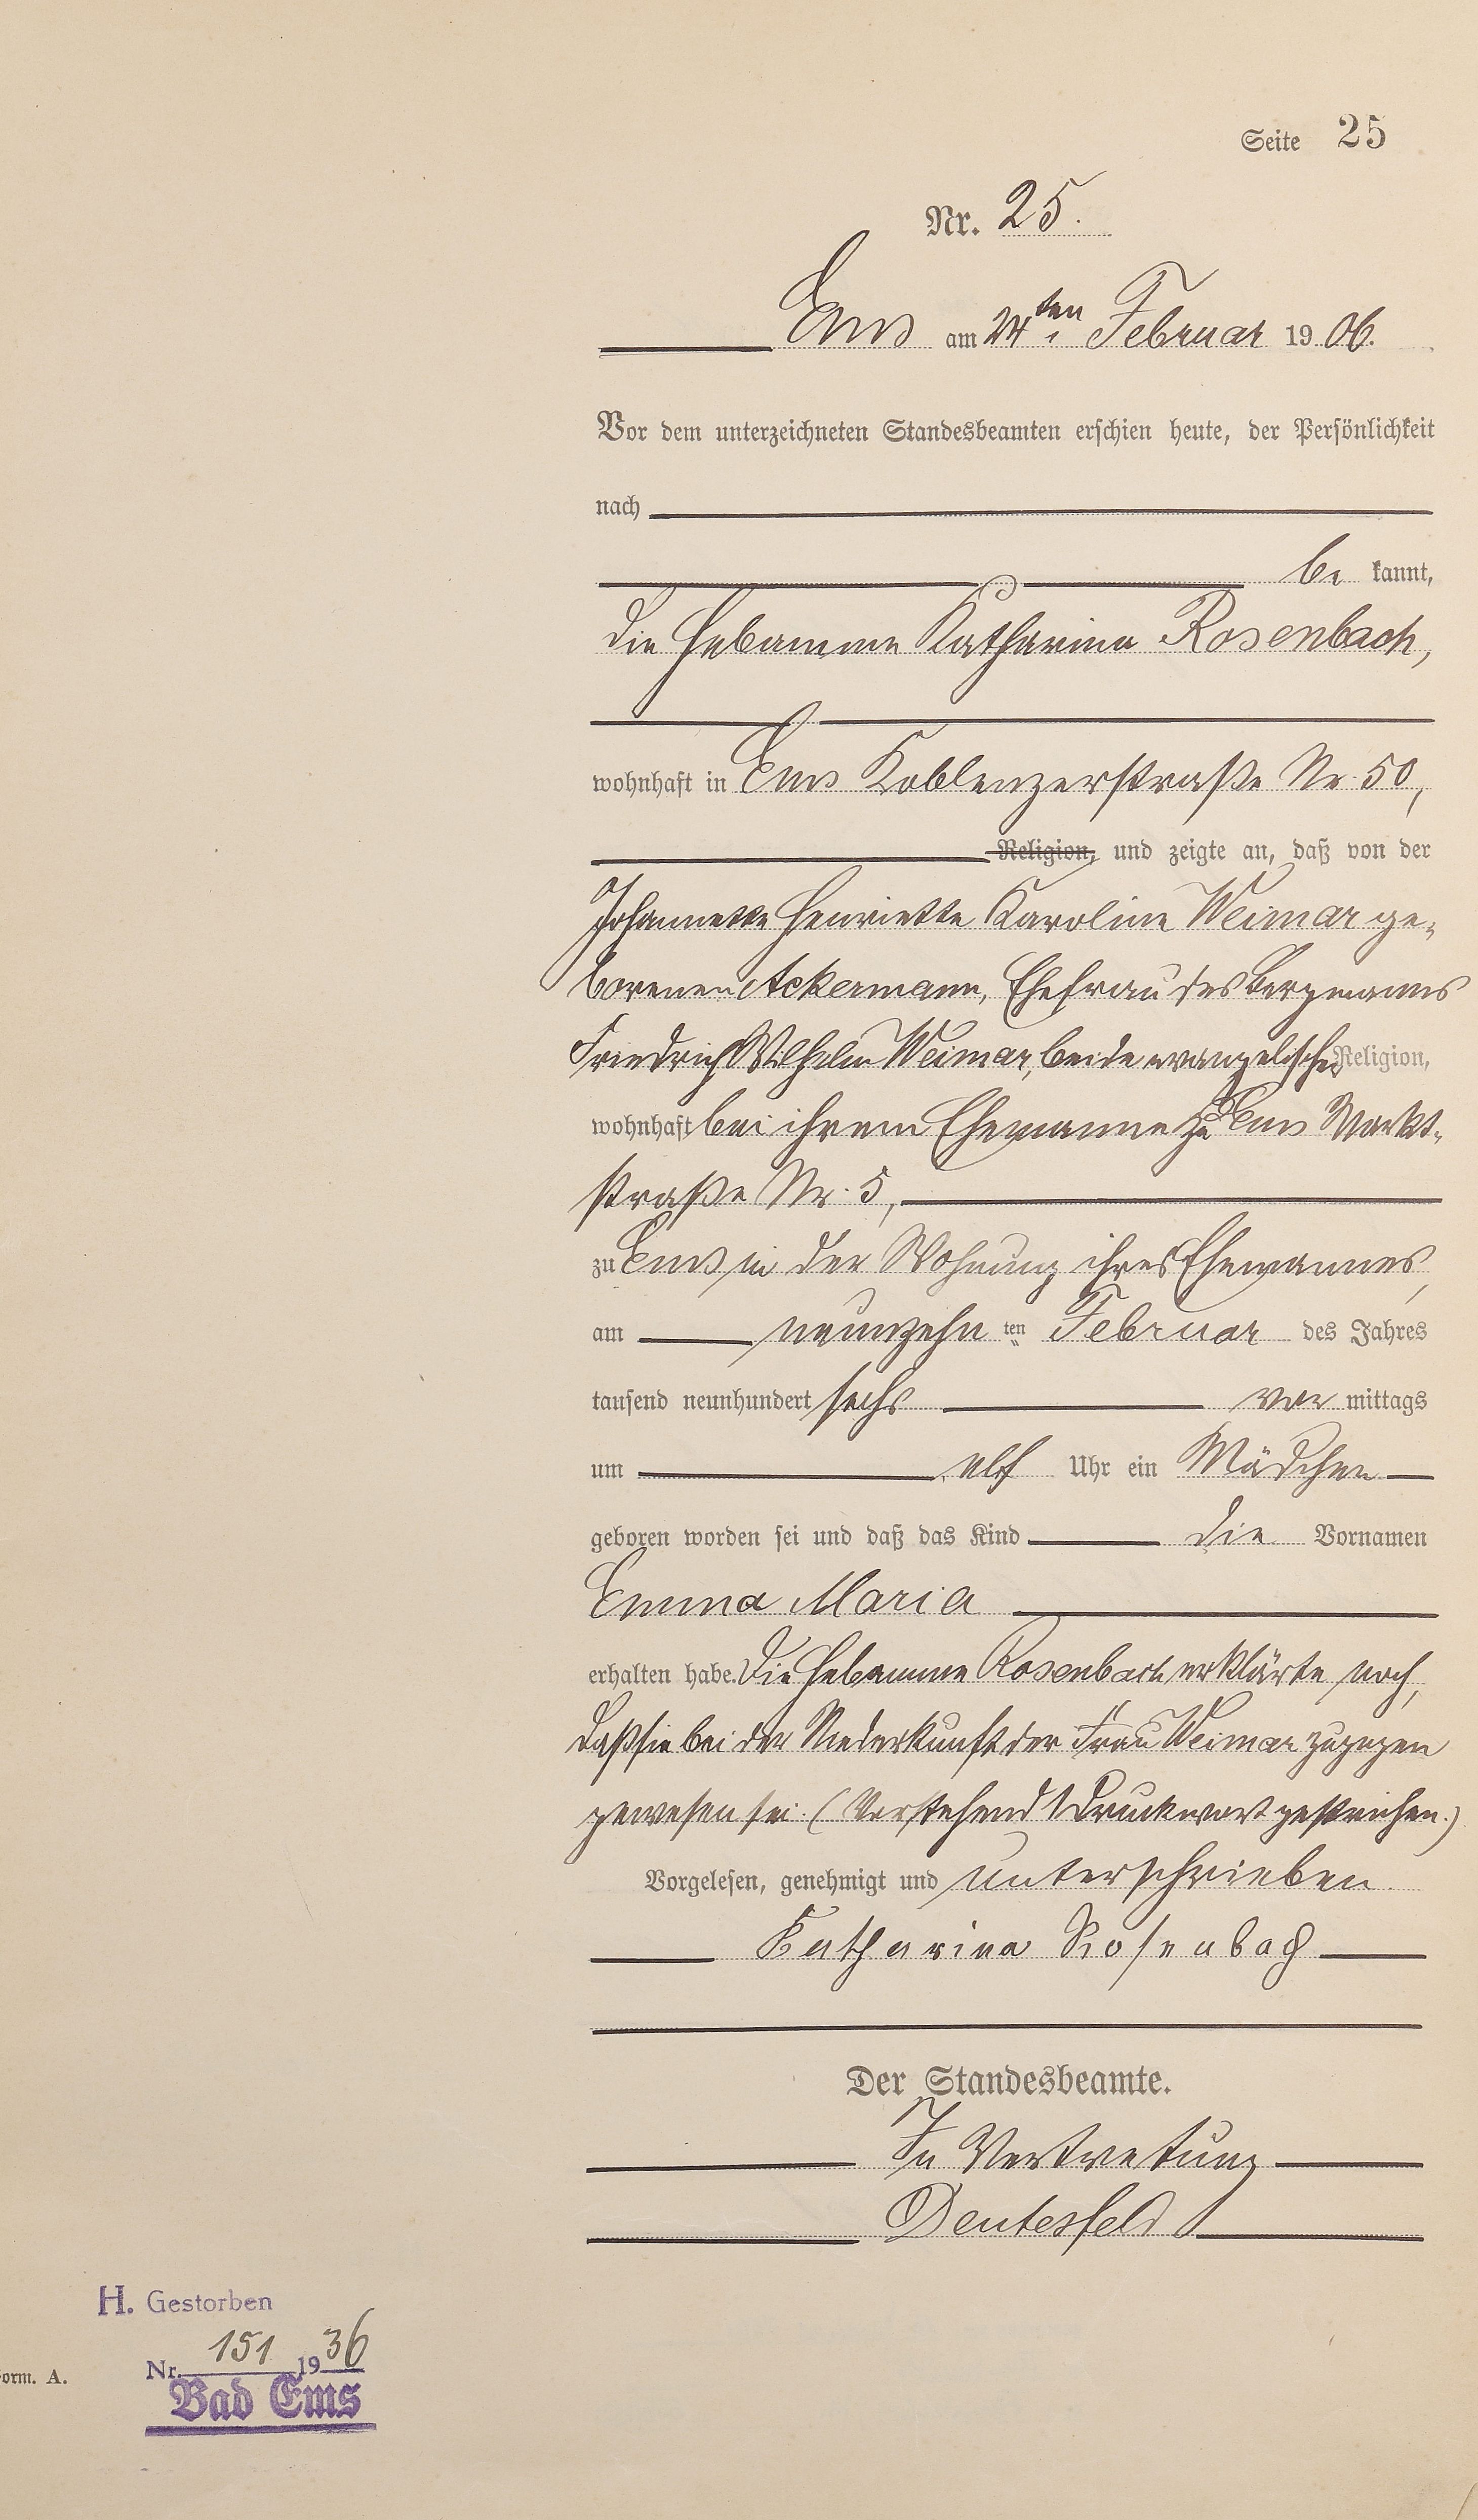 Seite 25
Nr. 25.
Ems am 24ten Februar 1906.
Vor dem unterzeichneten Standesbeamten erschien heute, der Persönlichkeit
nach
be kannt,
die Hebamme Katharina Rosenbach,
wohnhaft in Ems Koblenzerstraße Nr. 50,
Religion, und zeigte an, daß von der
Johannette Henriette Karoline Weimar ge-
borenen Ackermann, Ehefrau des Bergmanns
Friedrich Wilhelm Weimar, beide evangelischer Religion,
wohnhaft bei ihrem Ehemanne zu Ems Markt-
straße Nr. 5,
zu Ems in der Wohnung ihres Ehemannes,
am neunzehn ten Februar des Jahres
tausend neunhundert sechs vor mittags
um elf Uhr ein Mädchen
geboren worden sei und daß das Kind die Vornamen
Emma Maria
erhalten habe. Die Hebamme Rosenbach erklärte noch,
daß sie bei der Niederkunft der Frau Weimar zugegen
gewesen sei. (Vorstehend 1 Druckwort gestrichen.)
Vorgelesen, genehmigt und unterschrieben.
Katharina Rosenbach
Der Standesbeamte.
In Vertretung
Deutesfeld
H. Gestorben
Nr. 151 1936
Bad Ems
orm. A.